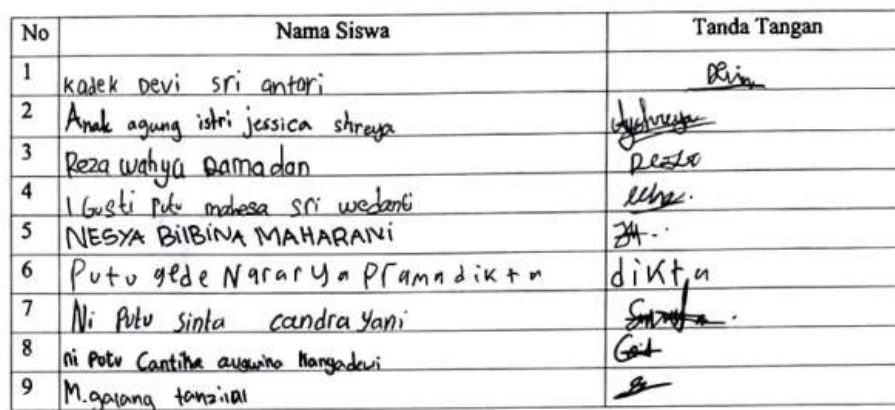 No Nama Siswa Tanda Tangan
1 Kadek Devi sri antari Devi
2 Anak agung istri jessica shreya
3 Reza wahyu Ramadan Reza
4 I Gusti Putu mahesa sri wedanti echa.
5 NESYA BIIBINA MAHARANI
6 Putu gede Nararya Pramndiktn diktn
7 Ni Putu Sinta candra yani
8 ni Potu Cantika Kangadewi
9 M.galang